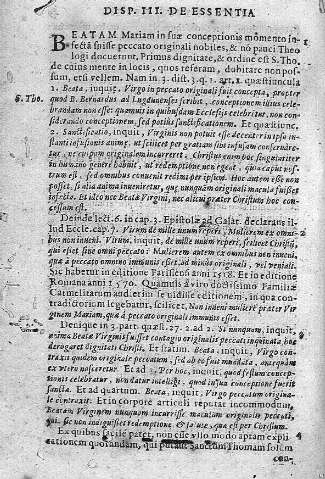 DISP. III. DE ESSENTIA
BEATAM Mariam in suæ conceptionis momento in-
fectā fuisse peccato originali nobiles, & nō pauci Theo
logi docuerunt. Primus dignitate, & ordine est S. Tho.
de cuius mente in locis, quos referam, dubitare non pos-
sum, etsi vellem. Nam in 3. dist. 3. q. 1. art. 1. quæstiuncula
1. Beata, inquit, Virgo in peccato originali fuit concepta, propter
S. Tho.
quod B. Bernardus ad Lugdunenses scribit, conceptionem illius cele-
brandam non esse: quamuis in quibusdam Ecclesijs celebretur, non con-
siderando conceptionem, sed potius sanctificationem. Et quæstiunc.
2. Sanctificatio, inquit, Virginis non potuit esse decenter in ipso in-
stanti infusionis animæ, ut scilicet per gratiam sibi infusam conservare-
tur, ne culpam originalem incurreret. Christus enim hoc singulariter
in humano genere habuit, ut redemptione non egeat, quia caput nos-
trum est, sed omnibus convenit redimi per ipsum. Hoc autem esse non
posset, si alia anima inveniretur, quæ nunquam originali macula fuisset
infecta. Et ideo nec Beatæ Virgini, nec alicui præter Christum hoc con-
cessum est.
Deinde lect. 6. in cap. 3. Epistolæ ad Galat. declarans il-
lud Eccle. cap. 7. Virum de mille unum reperi, Mulierem ex omni-
bus non inveni. Virum, inquit, de mille unum reperi, scilicet Christū,
qui esset sine omni peccato: Mulierem autem ex omnibus non inveni,
quæ à peccato omnino immunis esset, ad minus originali, vel veniali.
Sic habetur in editione Parisiensi anni 1518. Et in editione
Romana anni 1570. Quamuis à viro doctissimo Familiæ
Carmelitarum audierim se vidisse editionem, in qua con-
tradictorium legebatur, scilicet, Non inveni mulierē præter Vir-
ginem Mariam, quæ à peccato originali immunis esset.
Denique in 3. part. quæst. 27. a. 2. ad 2. Si nunquam, inquit,
anima Beatæ Virginis fuisset contagio originalis peccati inquinata hoc
derogaret dignitati Christi. Et statim. Beata, inquit, Virgo con-
traxit quidem originale peccatum, sed ab eo fuit mundata, antequam
ex utero nasceretur. Et ad 3. Per hoc, inquit, quod festum concep-
tionis celebratur, non datur intelligi, quod in sua conceptione fuerit
sancta. Et ad quartum. Beata, inquit, Virgo peccatum origina-
le contraxit. Et in corpore articuli reputat incommodum,
Beatam Virginem nunquam incurrisse maculam originalis peccati,
qui. Sic non indiguisset redemptione, & salute, quæ est per Christum.
Ex quibus facile patet, non esse vllo modo aptam expli-
cationem quorundam, qui putant Sanctum Thomam solum
con-